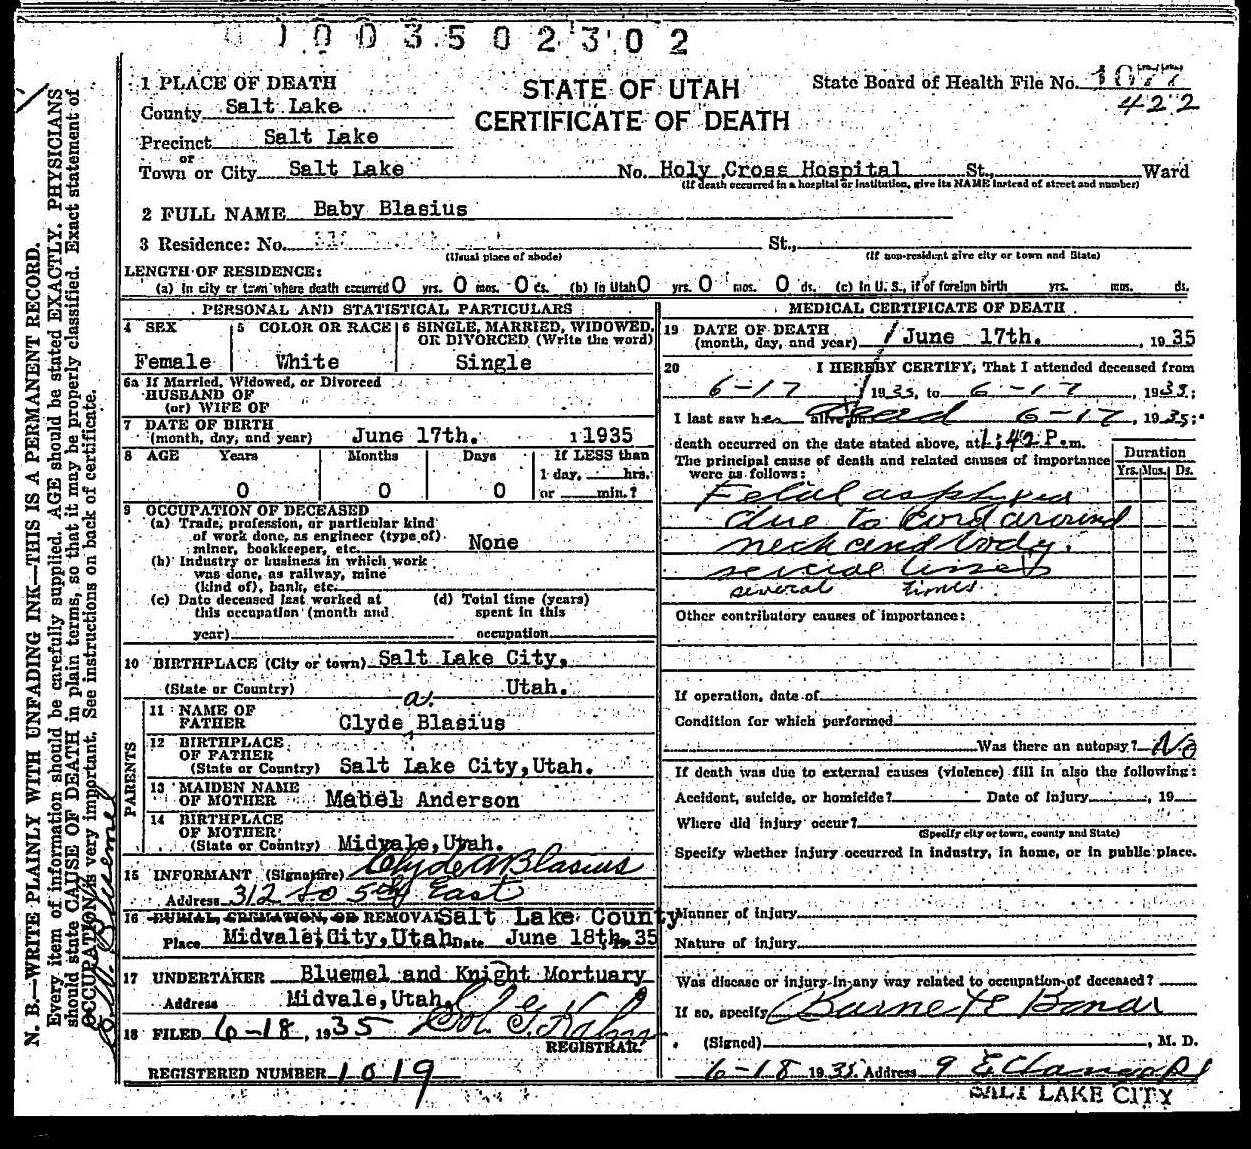 0 1 0 0 3 5 0 2 3 0 2
1 PLACE OF DEATH
STATE OF UTAH
CERTIFICATE OF DEATH
State Board of Health File No. 1077
422
County Salt Lake
Precinct Salt Lake
or
Town or City Salt Lake No. Holy Cross Hospital St., Ward
(If death occurred in a hospital or institution, give its NAME instead of street and number)
2 FULL NAME Baby Blasius
3 Residence: No. St.,
(Usual place of abode) (If non-resident give city or town and State)
LENGTH OF RESIDENCE:
(a) In city or town where death occurred 0 yrs. 0 mos. 0 ds. (b) In Utah 0 yrs. 0 mos. 0 ds. (c) In U. S., if of foreign birth yrs. mos. ds.
PERSONAL AND STATISTICAL PARTICULARS
4 SEX
Female
5 COLOR OR RACE
White
6 SINGLE, MARRIED, WIDOWED, OR DIVORCED (Write the word)
Single
6a If Married, Widowed, or Divorced
HUSBAND OF
(or) WIFE OF
7 DATE OF BIRTH
(month, day, and year) June 17th. 1 1935
8 AGE Years Months Days If LESS than
1 day, hrs.
0 0 0 or min.?
9 OCCUPATION OF DECEASED
(a) Trade, profession, or particular kind
of work done, as engineer (type of)
miner, bookkeeper, etc. None
(b) Industry or business in which work
was done, as railway, mine
(kind of), bank, etc.
(c) Date deceased last worked at
this occupation (month and
year)
(d) Total time (years)
spent in this
occupation
10 BIRTHPLACE (City or town) Salt Lake City,
(State or Country) Utah.
PARENTS
11 NAME OF
FATHER Clyde a. Blasius
12 BIRTHPLACE
OF FATHER
(State or Country) Salt Lake City, Utah.
13 MAIDEN NAME
OF MOTHER Mabel Anderson
14 BIRTHPLACE
OF MOTHER
(State or Country) Midvale, Utah.
15 INFORMANT (Signature) Clyde A Blasius
Address 312 So 5th East
16 BURIAL, CREMATION, OR REMOVAL Salt Lake County
Place Midvale City, Utah Date June 18th, 19 35
17 UNDERTAKER Bluemel and Knight Mortuary
Address Midvale, Utah.
18 FILED 6-18, 1935
REGISTRAR.
REGISTERED NUMBER 1019
MEDICAL CERTIFICATE OF DEATH
19 DATE OF DEATH
(month, day, and year) June 17th. , 1935
20 I HEREBY CERTIFY, That I attended deceased from
6-17 1935, to 6-17, 1935;
I last saw her alive on Dead 6-17, 1935;
death occurred on the date stated above, at 1:42 P.m.
The principal cause of death and related causes of importance
were as follows:
Duration
Yrs. Mos. Ds.
Fetal asphyxia
due to Cord around
neck and body.
several times
several times
Other contributory causes of importance:
If operation, date of
Condition for which performed
Was there an autopsy? No
If death was due to external causes (violence) fill in also the following:
Accident, suicide, or homicide? Date of injury , 19
Where did injury occur?
(Specify city or town, county and State)
Specify whether injury occurred in industry, in home, or in public place.
Manner of injury
Nature of injury
Was disease or injury in any way related to occupation of deceased?
If so, specify
(Signed) , M. D.
6-18 1935 Address
SALT LAKE CITY
N. B.—WRITE PLAINLY WITH UNFADING INK—THIS IS A PERMANENT RECORD.
Every item of information should be carefully supplied. AGE should be stated EXACTLY. PHYSICIANS
should state CAUSE OF DEATH in plain terms, so that it may be properly classified. Exact statement of
OCCUPATION is very important. See instructions on back of certificate.